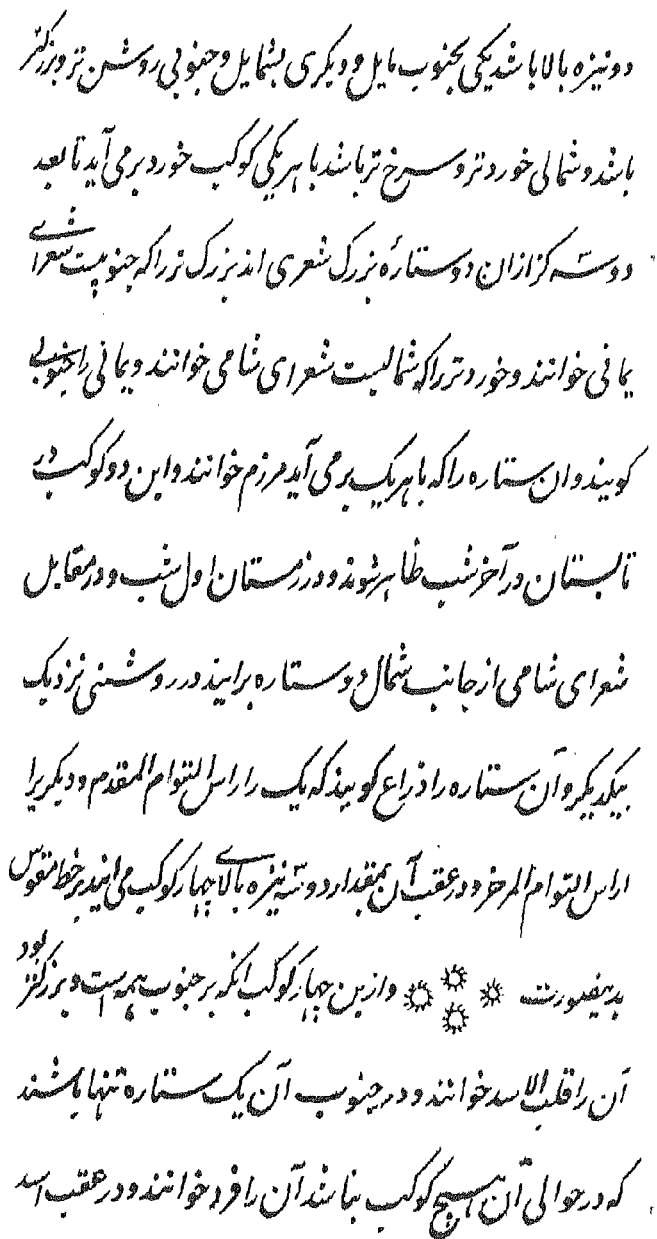 دو نیزه بالا باشد یکی بجنوب مایل و دیکری بشمایل و جنوبی روشن تر و بزرکتر
باشد و شمالی خورد تر و سرخ تر باشد با هر یکی کوکب خورد برمی آید تا بعد
دو سه کز ازان دو ستارهٔ بزرک شعری اند بزرک تر را که جنوبیست شعرای
یمانی خوانند و خورد تر را که شمالیست شعرای شامی خوانند و یمانی را جنوبی
کویند و ان ستاره را که با هر یک برمی آید مرزم خوانند و این دو کوکب در
تابستان در آخر شب ظاهر شوند و در زمستان اول شب و در مقابل
شعرای شامی از جانب شمال دو ستاره برایند در روشنی نزدیک
بیکدیکر و آن ستاره را ذراع کویند که یک را راس التوام المقدم و دیکریرا
اراس التوام المرخر و در عقب آن بمقدار دو سه نیزه بالای چهار کوکب می ایند بر خط مقوس
بدینصورت و ازین چهار کوکب انکه بر جنوب همه است و بزرکتر بود
آن را قلب الاسد خوانند و در جنوب آن یک ستاره تنها باشند
که در حوالی آن هیچ کوکب نباشد آن را فرد خوانند و در عقب اسد